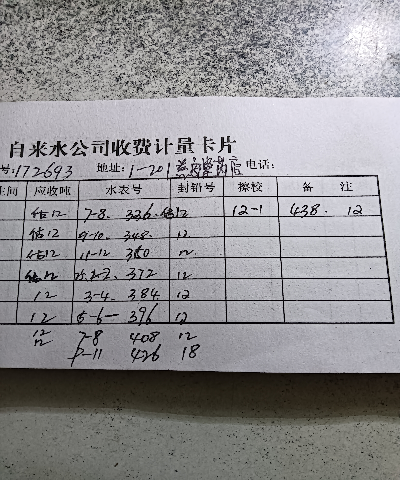 自来水公司收费计量卡片
号:172693 地址:1-201 电话:
间 应收吨 水表号 封铅号 擦校 备 注
估12 7-8. 336. 估12 12-1 438. 12
估12 9-10. 348. 12
估12 11-12 360 12
估12 25.1-2. 372 12
12 3-4. 384. 12
12 5-6- 396 12
12 7-8 408 12
12 9-11 426 18